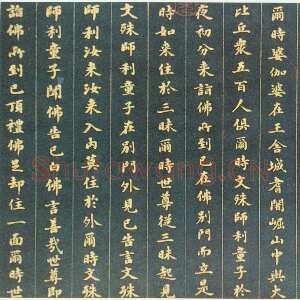 爾時婆伽婆在王舍城耆闍崛山中與大
比丘眾五百人俱爾時文殊師利童子於
夜初分來詣佛所到已在佛別門而立是
時如來住於三昧爾時世尊從三昧起見
文殊師利童子在別門外見已告言文殊
師利汝來汝來入內莫住於外爾時文殊
師利童子聞佛告已白佛言善哉世尊即
詣佛所到已頂禮佛足却住一面爾時世